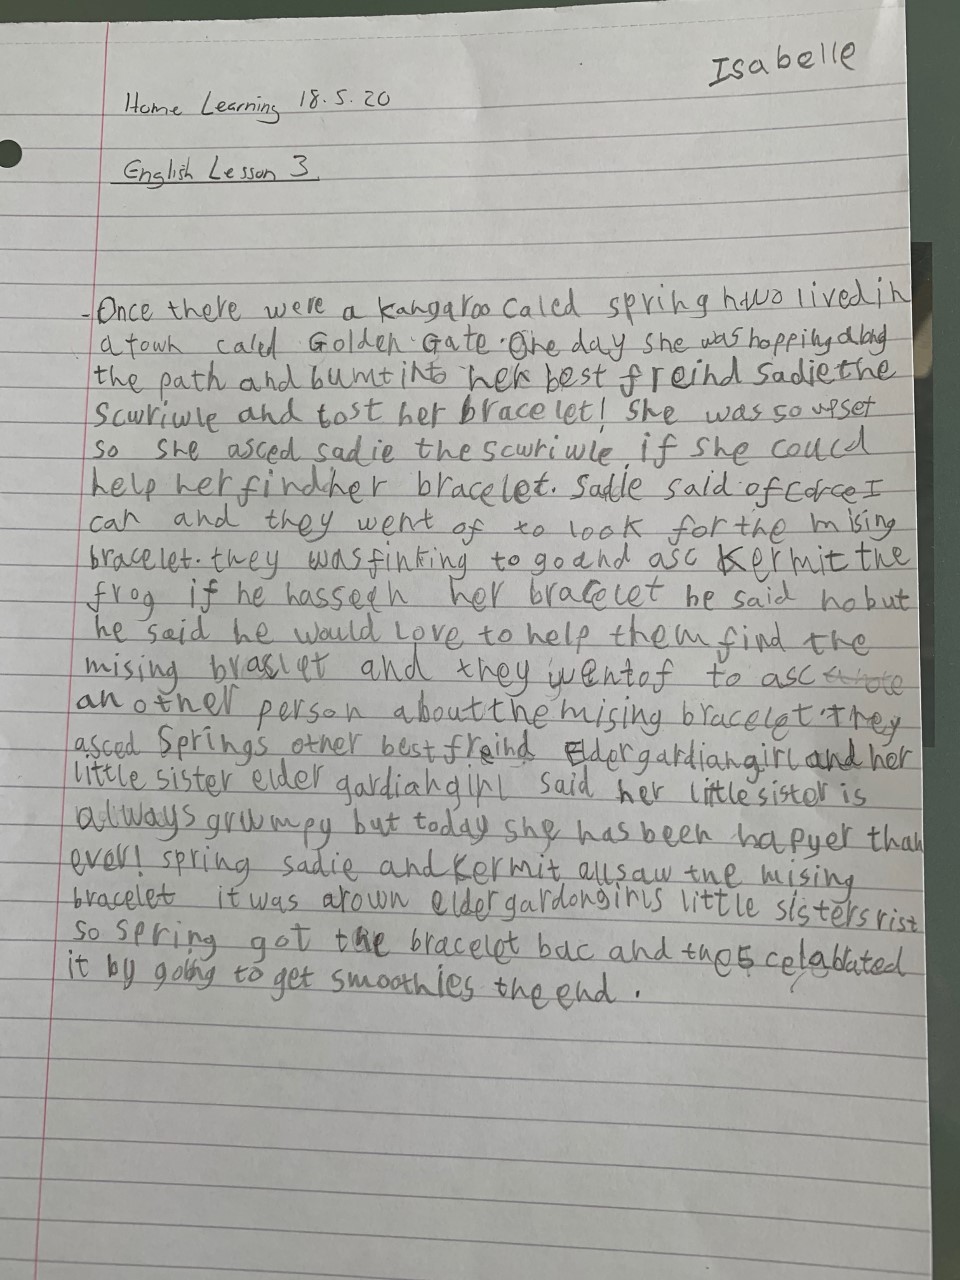 Isabelle
Home Learning 18.5.20
English Lesson 3
- Once there were a kangaroo caled spring hwo lived in
a town caled Golden Gate. One day she was hopping along
the path and bumt into her best freind sadie the
scwriwle and lost her bracelet! She was so upset
so she asced sadie the scwriwle if she could
help her find her bracelet. Sadie said of corce I
can and they went of to look for the mising
bracelet. they was finking to go and asc Kermit the
frog if he has seen her bracelet he said no but
he said he would love to help them find the
mising braclet and they went of to asc
an other person about the mising bracelet. They
asced Springs other best freind Eldergardiangirl and her
little sister elder gardiangirl said her little sister is
allways gruumpy but today she has been hapyer than
ever! spring sadie and Kermit all saw the mising
bracelet it was arown elder gardongirls little sisters rist
so spring got the bracelet bac and the 5 celablated
it by going to get smoothies the end.